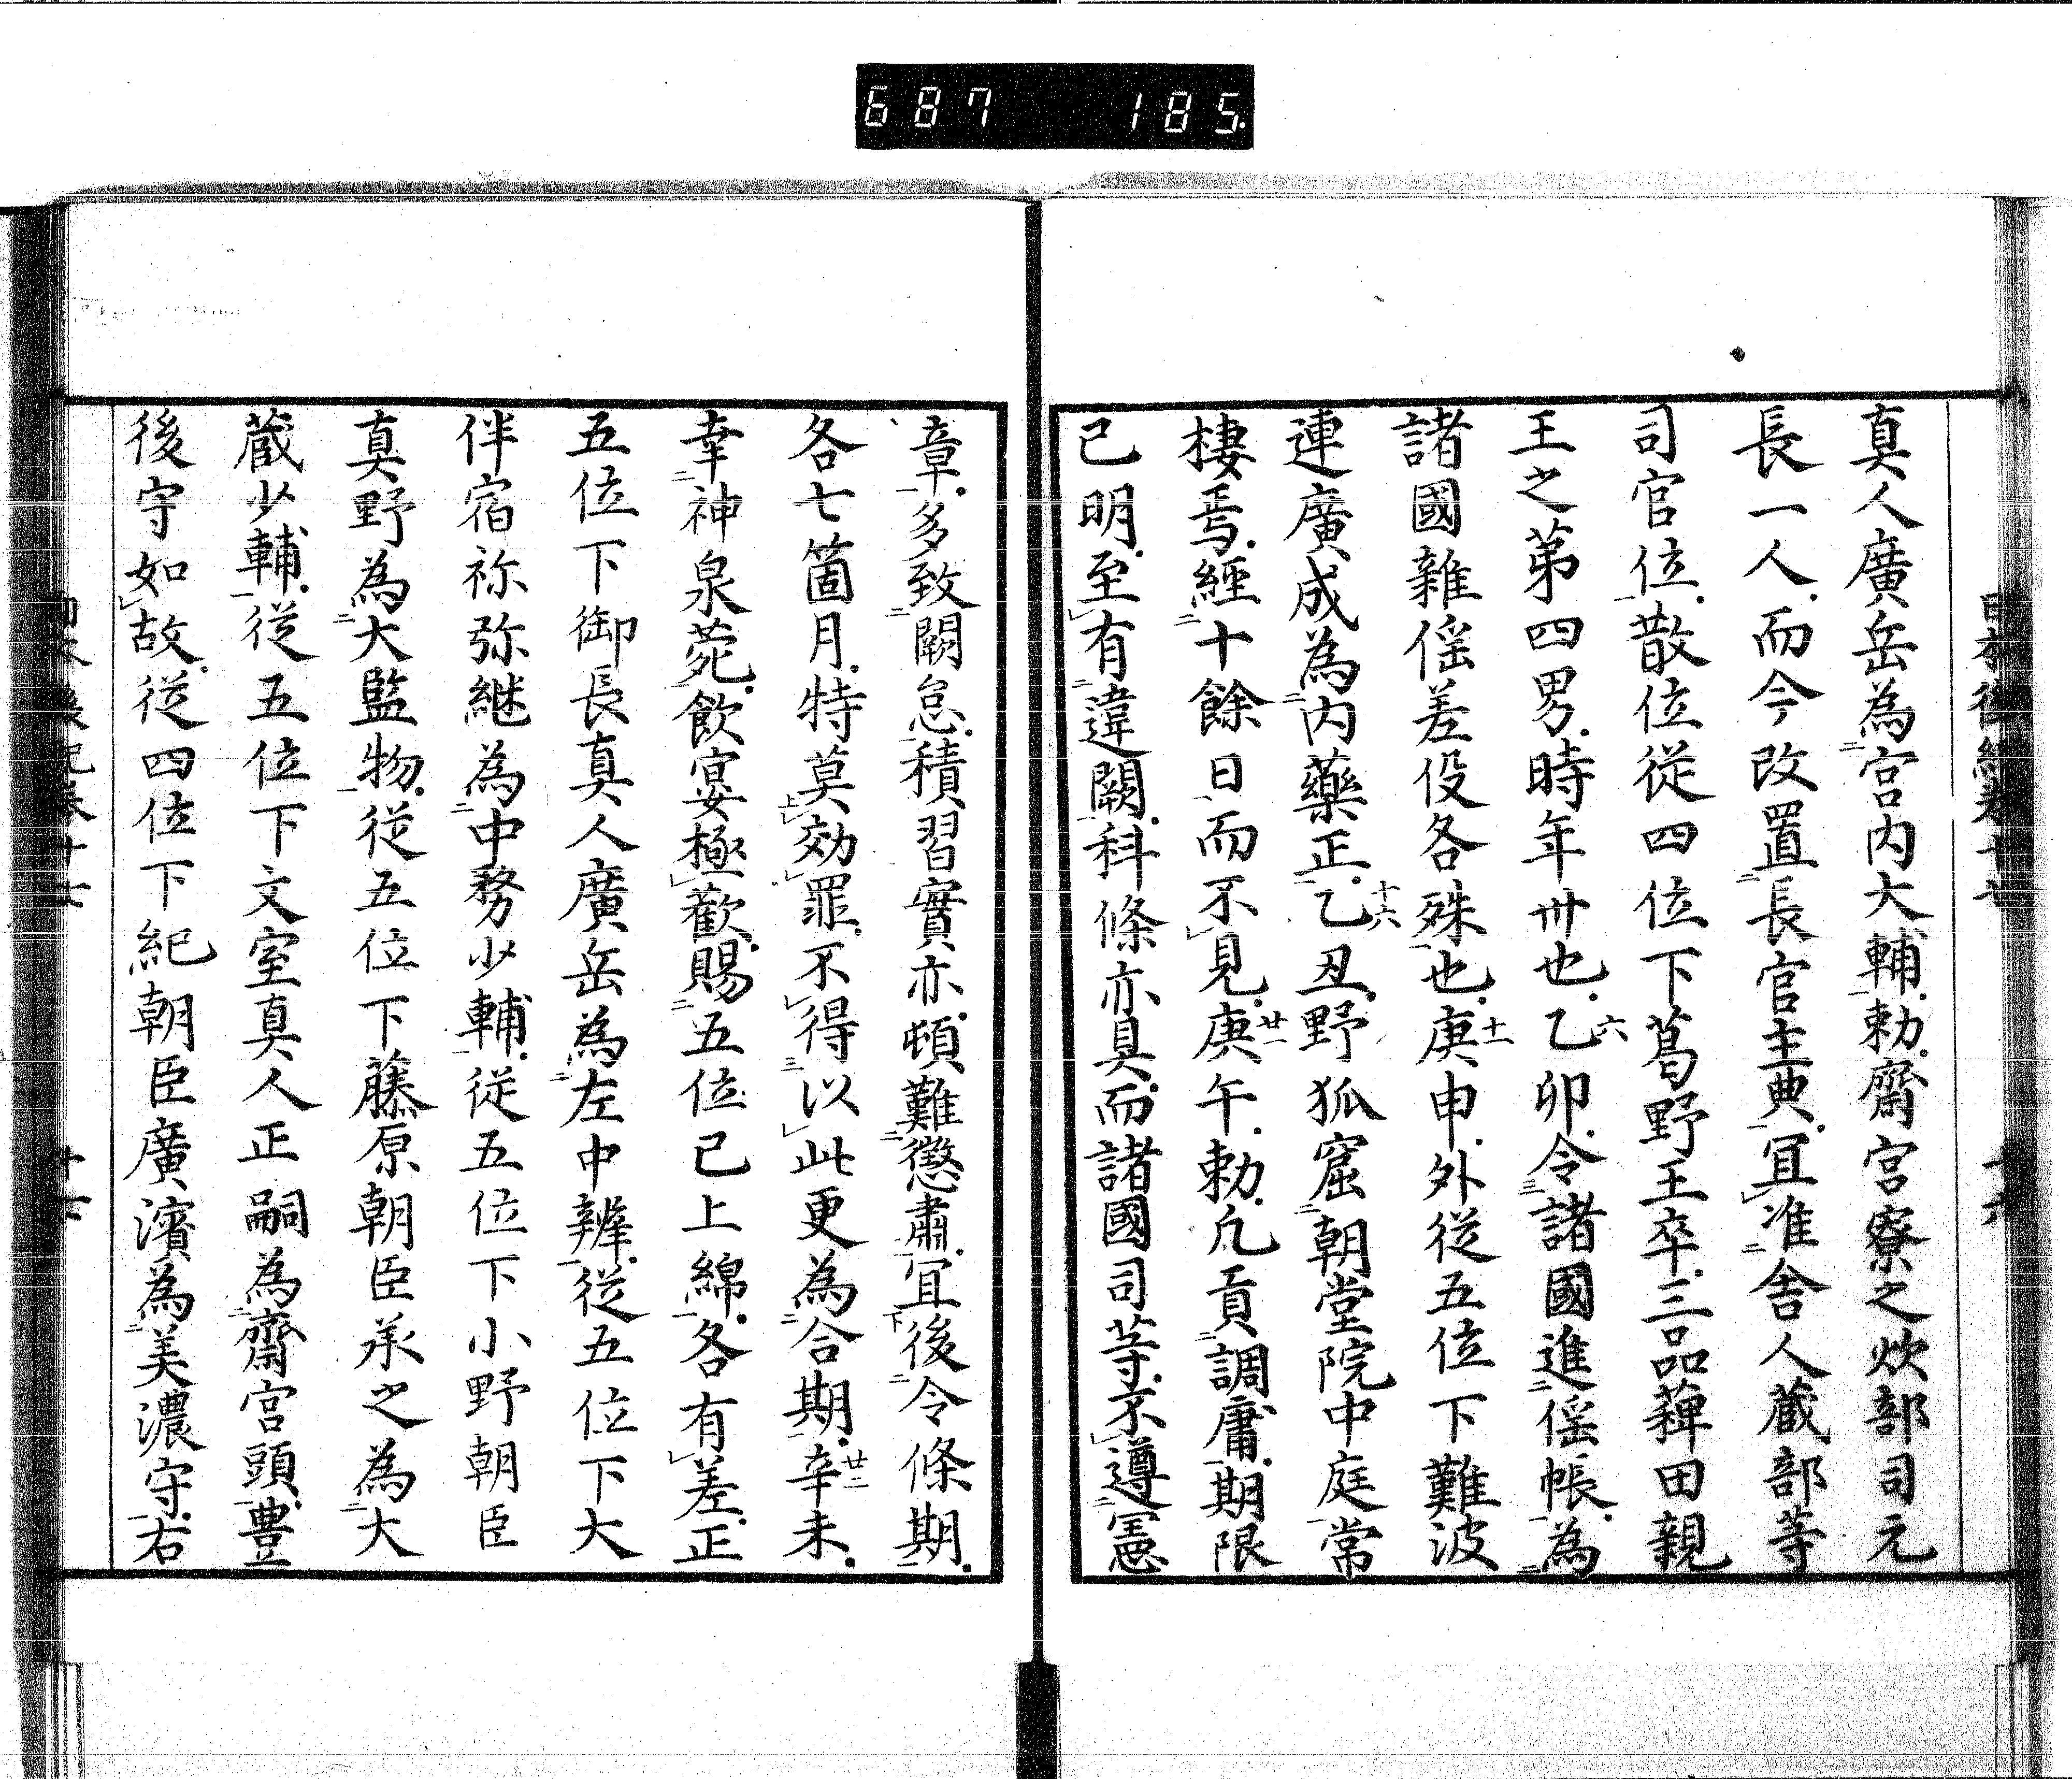 687 185
真人廣岳為宮内大輔勅齋宮寮之炊部司元
長一人而今改置長官主典冝准舎人蔵部等
司官位散位従四位下葛野王卒三品薭田親
王之第四男時年卅也乙卯令諸國進徭帳為
諸國雜徭差役各殊也庚申外従五位下難波
連廣成為内藥正乙丑野狐窟朝堂院中庭常
棲焉經十餘日而不見庚午勅凢貢調庸期限
已明至有違闕科條亦具而諸國司等不遵憲
章多致闕怠積習實亦頓難懲肅冝後令條期
各七箇月特莫効罪不得以此更為合期辛未
幸神泉苑飲宴極歡賜五位已上綿各有差正
五位下御長真人廣岳為左中辨従五位下大
伴宿祢弥継為中務少輔従五位下小野朝臣
真野為大監物従五位下藤原朝臣承之為大
蔵少輔従五位下文室真人正嗣為齋宮頭豊
後守如故従四位下紀朝臣廣濱為美濃守右